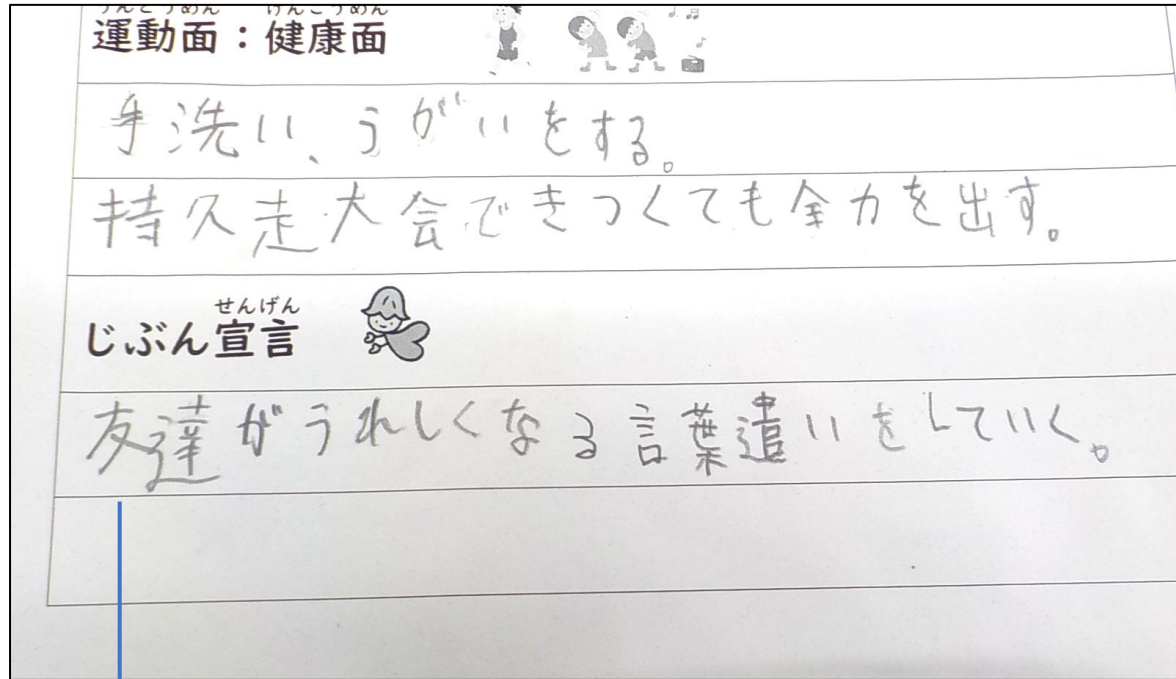 うんどうめん けんこうめん
運動面：健康面
手洗い、うがいをする。
持久走大会できつくても全力を出す。
せんげん
じぶん宣言
友達がうれしくなる言葉遣いをしていく。